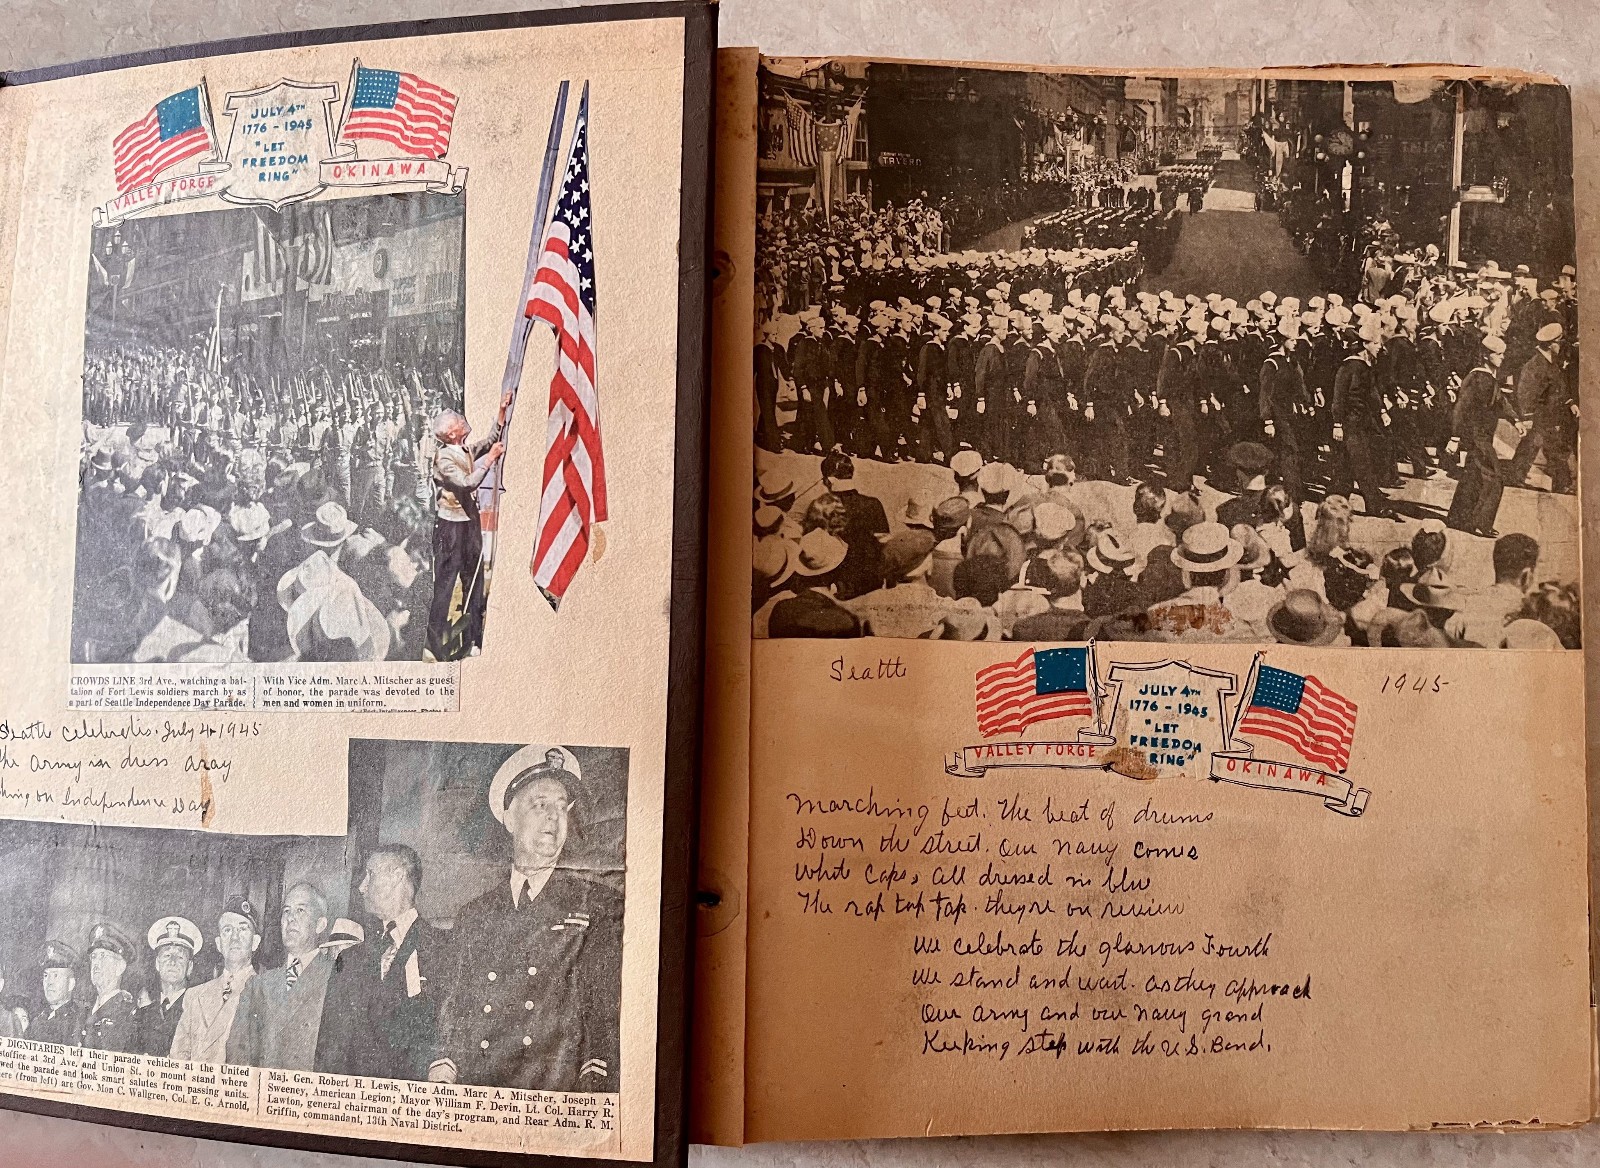 JULY 4TH
1776 - 1945
"LET
FREEDOM
RING"
VALLEY FORGE
OKINAWA
CROWDS LINE 3rd Ave., watching a bat-
talion of Fort Lewis soldiers march by as
a part of Seattle Independence Day Parade.
With Vice Adm. Marc A. Mitscher as guest
of honor, the parade was devoted to the
men and women in uniform.
Seattle celebrates. July 4 1945
the Army in dress aray
ching on Independence Day
G DIGNITARIES left their parade vehicles at the United
stoffice at 3rd Ave. and Union St. to mount stand where
wed the parade and took smart salutes from passing units.
ere (from left) are Gov. Mon C. Wallgren, Col. E. G. Arnold,
Maj. Gen. Robert H. Lewis, Vice Adm. Marc A. Mitscher, Joseph A.
Sweeney, American Legion; Mayor William F. Devin, Lt. Col. Harry R.
Lawton, general chairman of the day's program, and Rear Adm. R. M.
Griffin, commandant, 13th Naval District.
TAVERN
Seattle
1945
JULY 4TH
1776 - 1945
"LET
FREEDOM
RING"
VALLEY FORGE
OKINAWA
Marching feet. The beat of drums
Down the street. Our navy comes
White caps, all dressed in blue
The rap tap tap. they're on review
We celebrate the glorious Fourth
We stand and wait. as they approach
Our army and our navy grand
Keeping step with the U.S. Band.